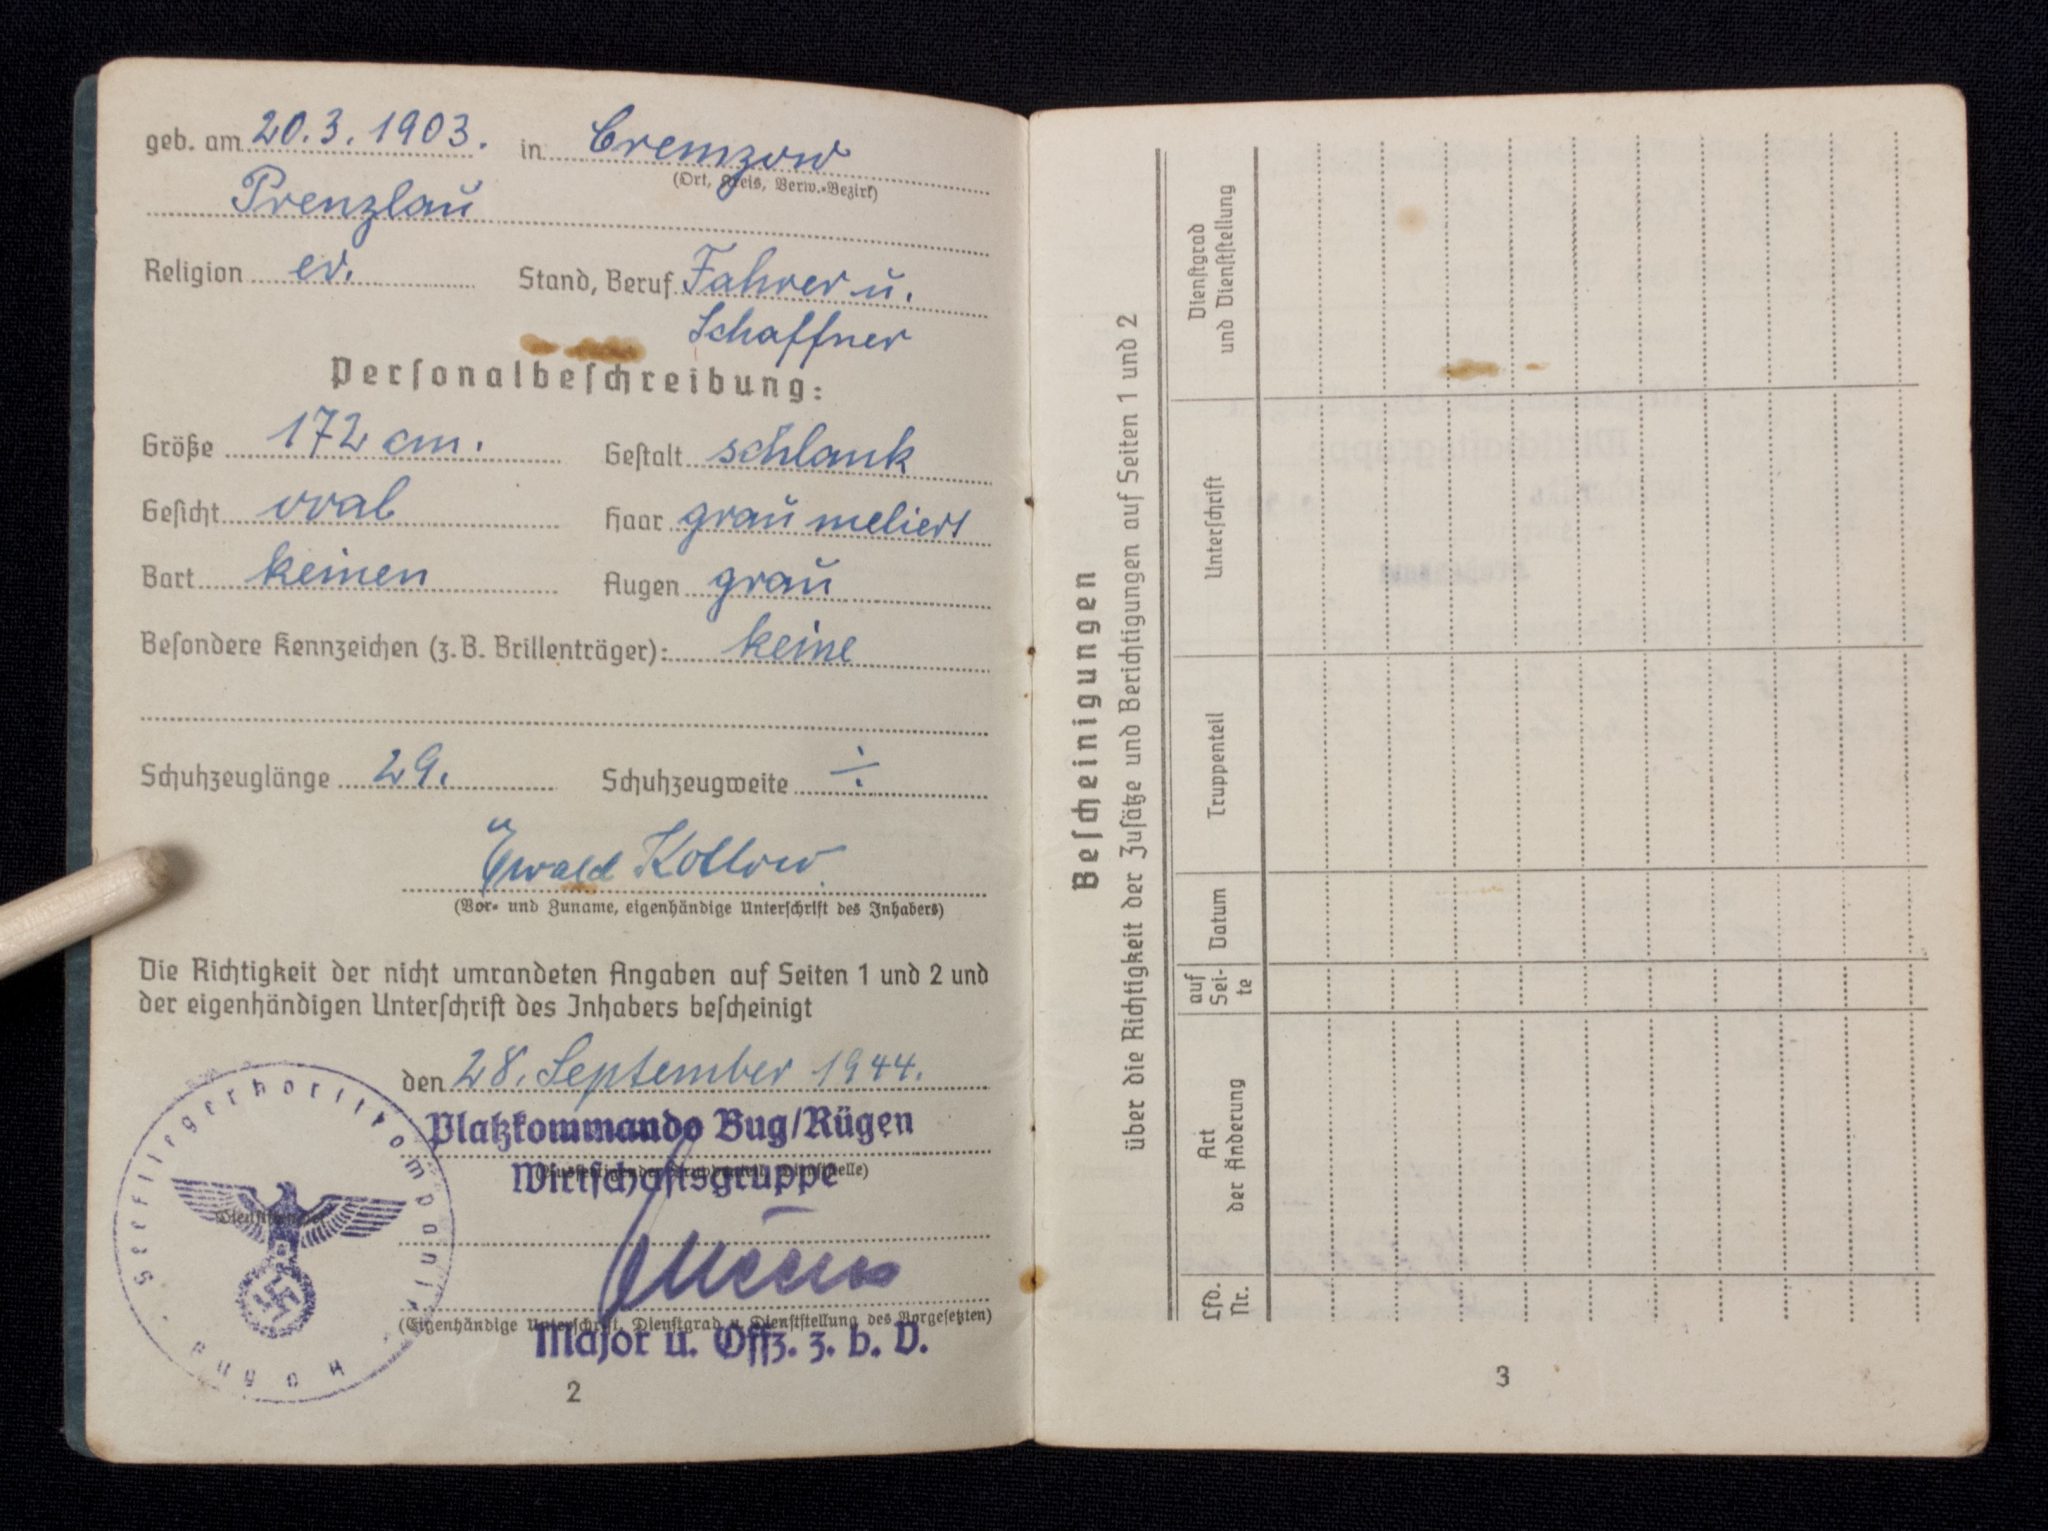 geb. am 20.3.1903. in Cremzow
(Ort, Kreis, Verw.-Bezirk)
Prenzlau
Religion ev. Stand, Beruf Fahrer u.
Schaffner
Personalbeschreibung:
Größe 172 cm. Gestalt schlank
Gesicht oval Haar grau meliert
Bart keinen Augen grau
Besondere Kennzeichen (z. B. Brillenträger): keine
Schuhzeuglänge 29. Schuhzeugweite ÷
Ewald Kollow.
(Vor- und Zuname, eigenhändige Unterschrift des Inhabers)
Die Richtigkeit der nicht umrandeten Angaben auf Seiten 1 und 2 und
der eigenhändigen Unterschrift des Inhabers bescheinigt
den 28. September 1944.
Platzkommando Bug/Rügen
Wirtschaftsgruppe
(Eigenhändige Unterschrift, Dienstgrad u. Dienststellung des Vorgesetzten)
Major u. Offz. z. b. V.
2
Bescheinigungen
über die Richtigkeit der Zusätze und Berichtigungen auf Seiten 1 und 2
Lfd. Nr.
Art der Änderung
auf Sei-te
Datum
Truppenteil
Unterschrift
Dienstgrad und Dienststellung
3